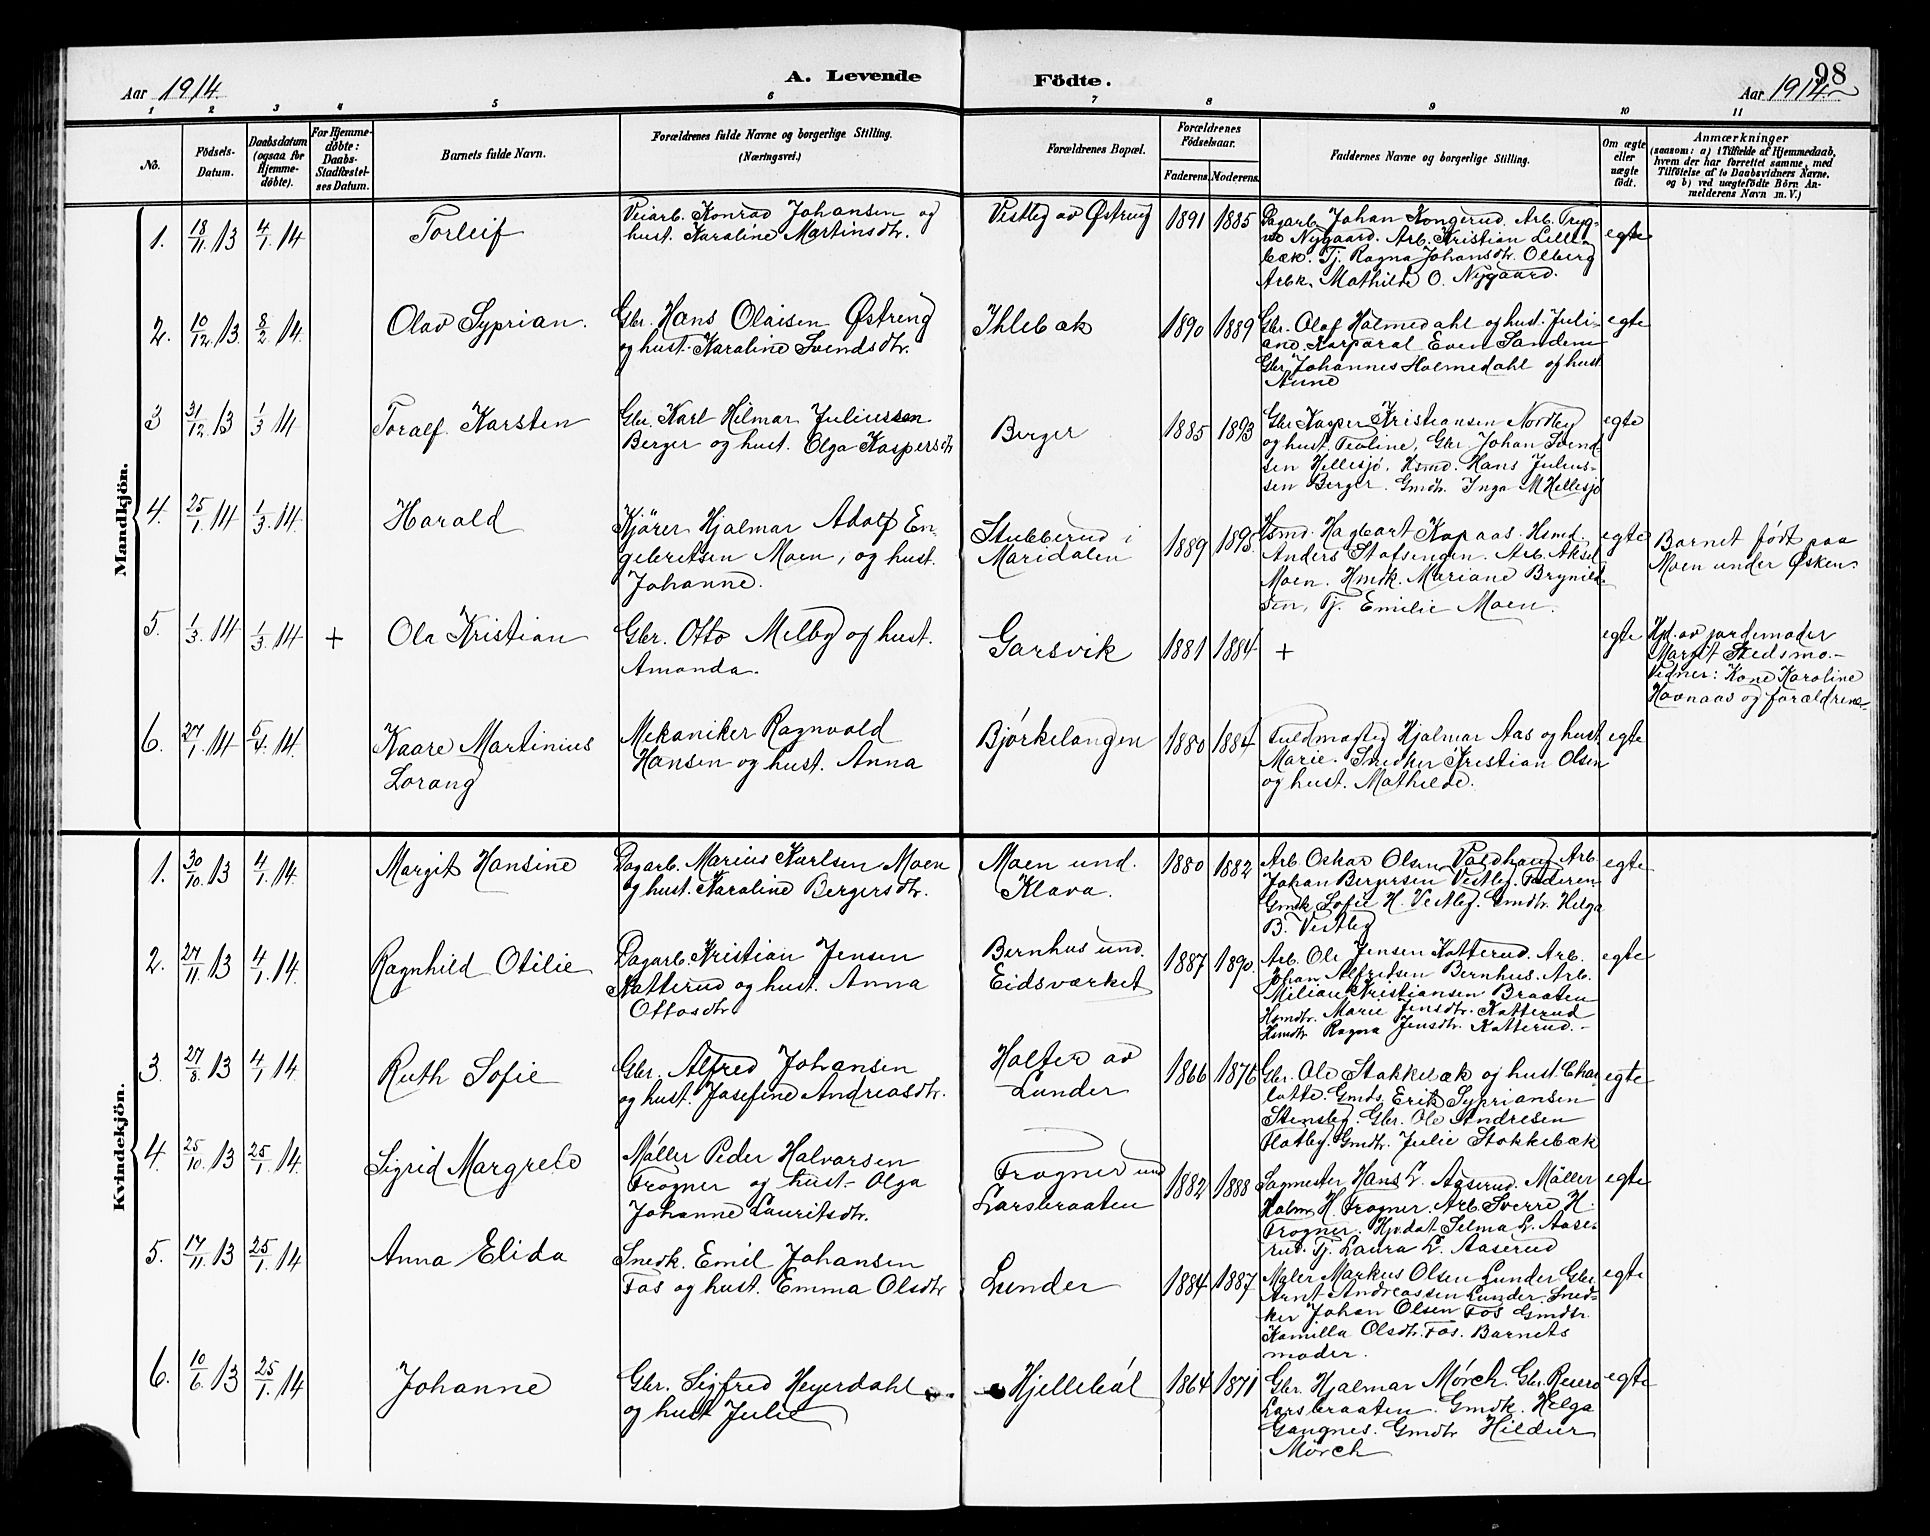 Aar 1914.
A. Levende Födte.
98
Aar 1914
1 2 3 4 5 6 7 8 9 10 11
No.
Födsels-
Datum.
Daabsdatum
(ogsaa for
Hjemme-
döbte).
For Hjemme-
döbte:
Daabs-
Stadfæstel-
ses Datum.
Barnets fulde Navn.
Forældrenes fulde Navne og borgerlige Stilling.
(Næringsvei.)
Forældrenes Bopæl.
Forældrenes
Födselsaar.
Faderens. Moderens.
Faddernes Navne og borgerlige Stilling.
Om ægte
eller
uægte
födt.
Anmærkninger
(saasom: a) i Tilfælde af Hjemmedaab,
hvem der har forrettet samme, med
Tilföielse af to Daabsvidners Navne.
og b) ved uægtefödte Börn An-
melderens Navn m. V.)
Mandkjön.
1. 18/11 13 4/1 14
Torleif
Veiarb. Konrad Johansen og
hust. Karoline Martinsdtr.
Vestby av Østreng
1891 1885
Dagarb. Johan Kongerud. Arb. Tryg-
ve Nygaard. Arb. Kristian Lille-
bæk. Tj. Ragna Johansdtr. Olberg
Arbk. Mathilde O. Nygaard.
egte
2. 10/12 13. 8/2 14.
Olav Syprian.
Gbr. Hans Olaisen Østreng
og hust. Karoline Svendsdtr.
Ihlebæk
1890 1889
Gbr. Olaf Holmedahl og hust. Juli-
ane. Korporal Even Sandem
Gbr. Johannes Holmedahl og hust
Anne
egte
3 31/12 13 1/3 14
Toralf Karsten
Gbr. Karl Hilmar Juliussen
Berger og hust. Olga Kaspersdtr
Berger
1885 1893
Gbr Kasper Kristiansen Nordby
og hust. Teoline, Gbr. Johan Svend-
sen Hellesjö, Hsmd. Hans Julius-
sen Berger. Gmdtr. Inga M Hellesjö
egte
4. 25/1 14 1/3 14.
Harald
Kjörer Hjalmar Adolf En-
gebretsen Moen, og hust.
Johanne.
Stubberud i
Maridalen
1889 1895
Hsmd. Hagbart Kopaas. Hsmd.
Anders Stofsengen. Arb. Aksel
Moen. Hmdk. Mariane Brynild-
sen, Tj. Emilie Moen.
egte
Barnet födt paa
Moen under Øsken.
5. 1/3 14 1/3 14 +
Ola Kristian
Gbr. Otto Melby og hust.
Amanda.
Garsvik
1881 1884
+
egte
Hjd. av jordemoder
Margit Stedsmo.-
Vidner: Kone Karoline
Hovnaas og forældrene.
6. 27/1 14 5/4 14.
Kaare Martinius
Lorang
Mekaniker Ragnvald
Hansen og hust. Anna
Bjørkelangen
1880 1884
Fuldmægtig Hjalmar Aas og hust.
Marie. Snedker Kristian Olsen
og hust. Mathilde.
egte
Kvindekjön.
1. 30/10 13 4/1 14.
Margit Hansine
Dagarb. Marius Karlsen Moen
og hust. Karoline Bergersdtr.
Moen und.
Klava.
1880 1882
Arb. Oskar Olsen Voldhaug Arb.
Johan Bergersen Vestby. Faderen
Gmdk Sofie H. Vestby. Gmdtr. Helga
B. Vestby
egte
2. 27/11 13 4/1 14.
Ragnhild Otilie
Dagarb. Kristian Jensen
Katterud og hust. Anna
Ottosdtr
Bernhus und.
Eidsværket
1887 1890
Arb. Ole Jensen Katterud. Arb.
Johan Alfredsen Bernhus. Arb.
Milian Kristiansen Braaten
Hsmdtr. Marie Jensdtr. Katterud
Hsmdtr Ragna Jensdtr. Katterud.-
egte
3. 27/8 13 4/1 14.
Ruth Sofie
Gbr. Alfred Johansen
og hust. Josefine Andreasdtr.
Holter av
Lunder
1866 1876
Gbr. Ole Stokkebæk og hust. Char
lotte. Gmds. Erik Syprianse​n
Stensby. Gbr. Ole Andresen
Flatby. Gmdtr. Julie Stokkebæk
egte
4. 25/10 13 25/1 14.
Sigrid Margrete
Møller Peder Halvorsen
Frogner og hust. Olga
Johanne Lauritsdtr.
Frogner und
Larsbraaten
1882 1888
Sagmester Hans L. Aaserud. Møller
Holm H. Frogner. Arb. Sverre H.
Frogner. Hjvdat. Selma L. Aase-
rud. Tj. Laura L. Aaserud
egte
5. 17/11 13 25/1 14
Anna Elida
Snedk. Emil Johansen
Fos og hust. Emma Olsdtr
Lunder
1884 1887
Maler Markus Olsen Lunder Gbr.
Arnt Andreassen Lunder. Sned-
ker Johan Olsen Fos Gmdtr.
Kamilla Olsdtr. Fos. Barnets
moder.
egte
6. 10/6 13 25/1 14
Johanne
Gbr. Sigfred Heyerdahl
og hust Julie
Hjellebøl
1864 1871
Gbr. Hjalmar Mörch. Gbr. Reiero
Larsbraaten. Gmdk. Helga
Gangnes. Gmdtr Hildur
Mörch
egte